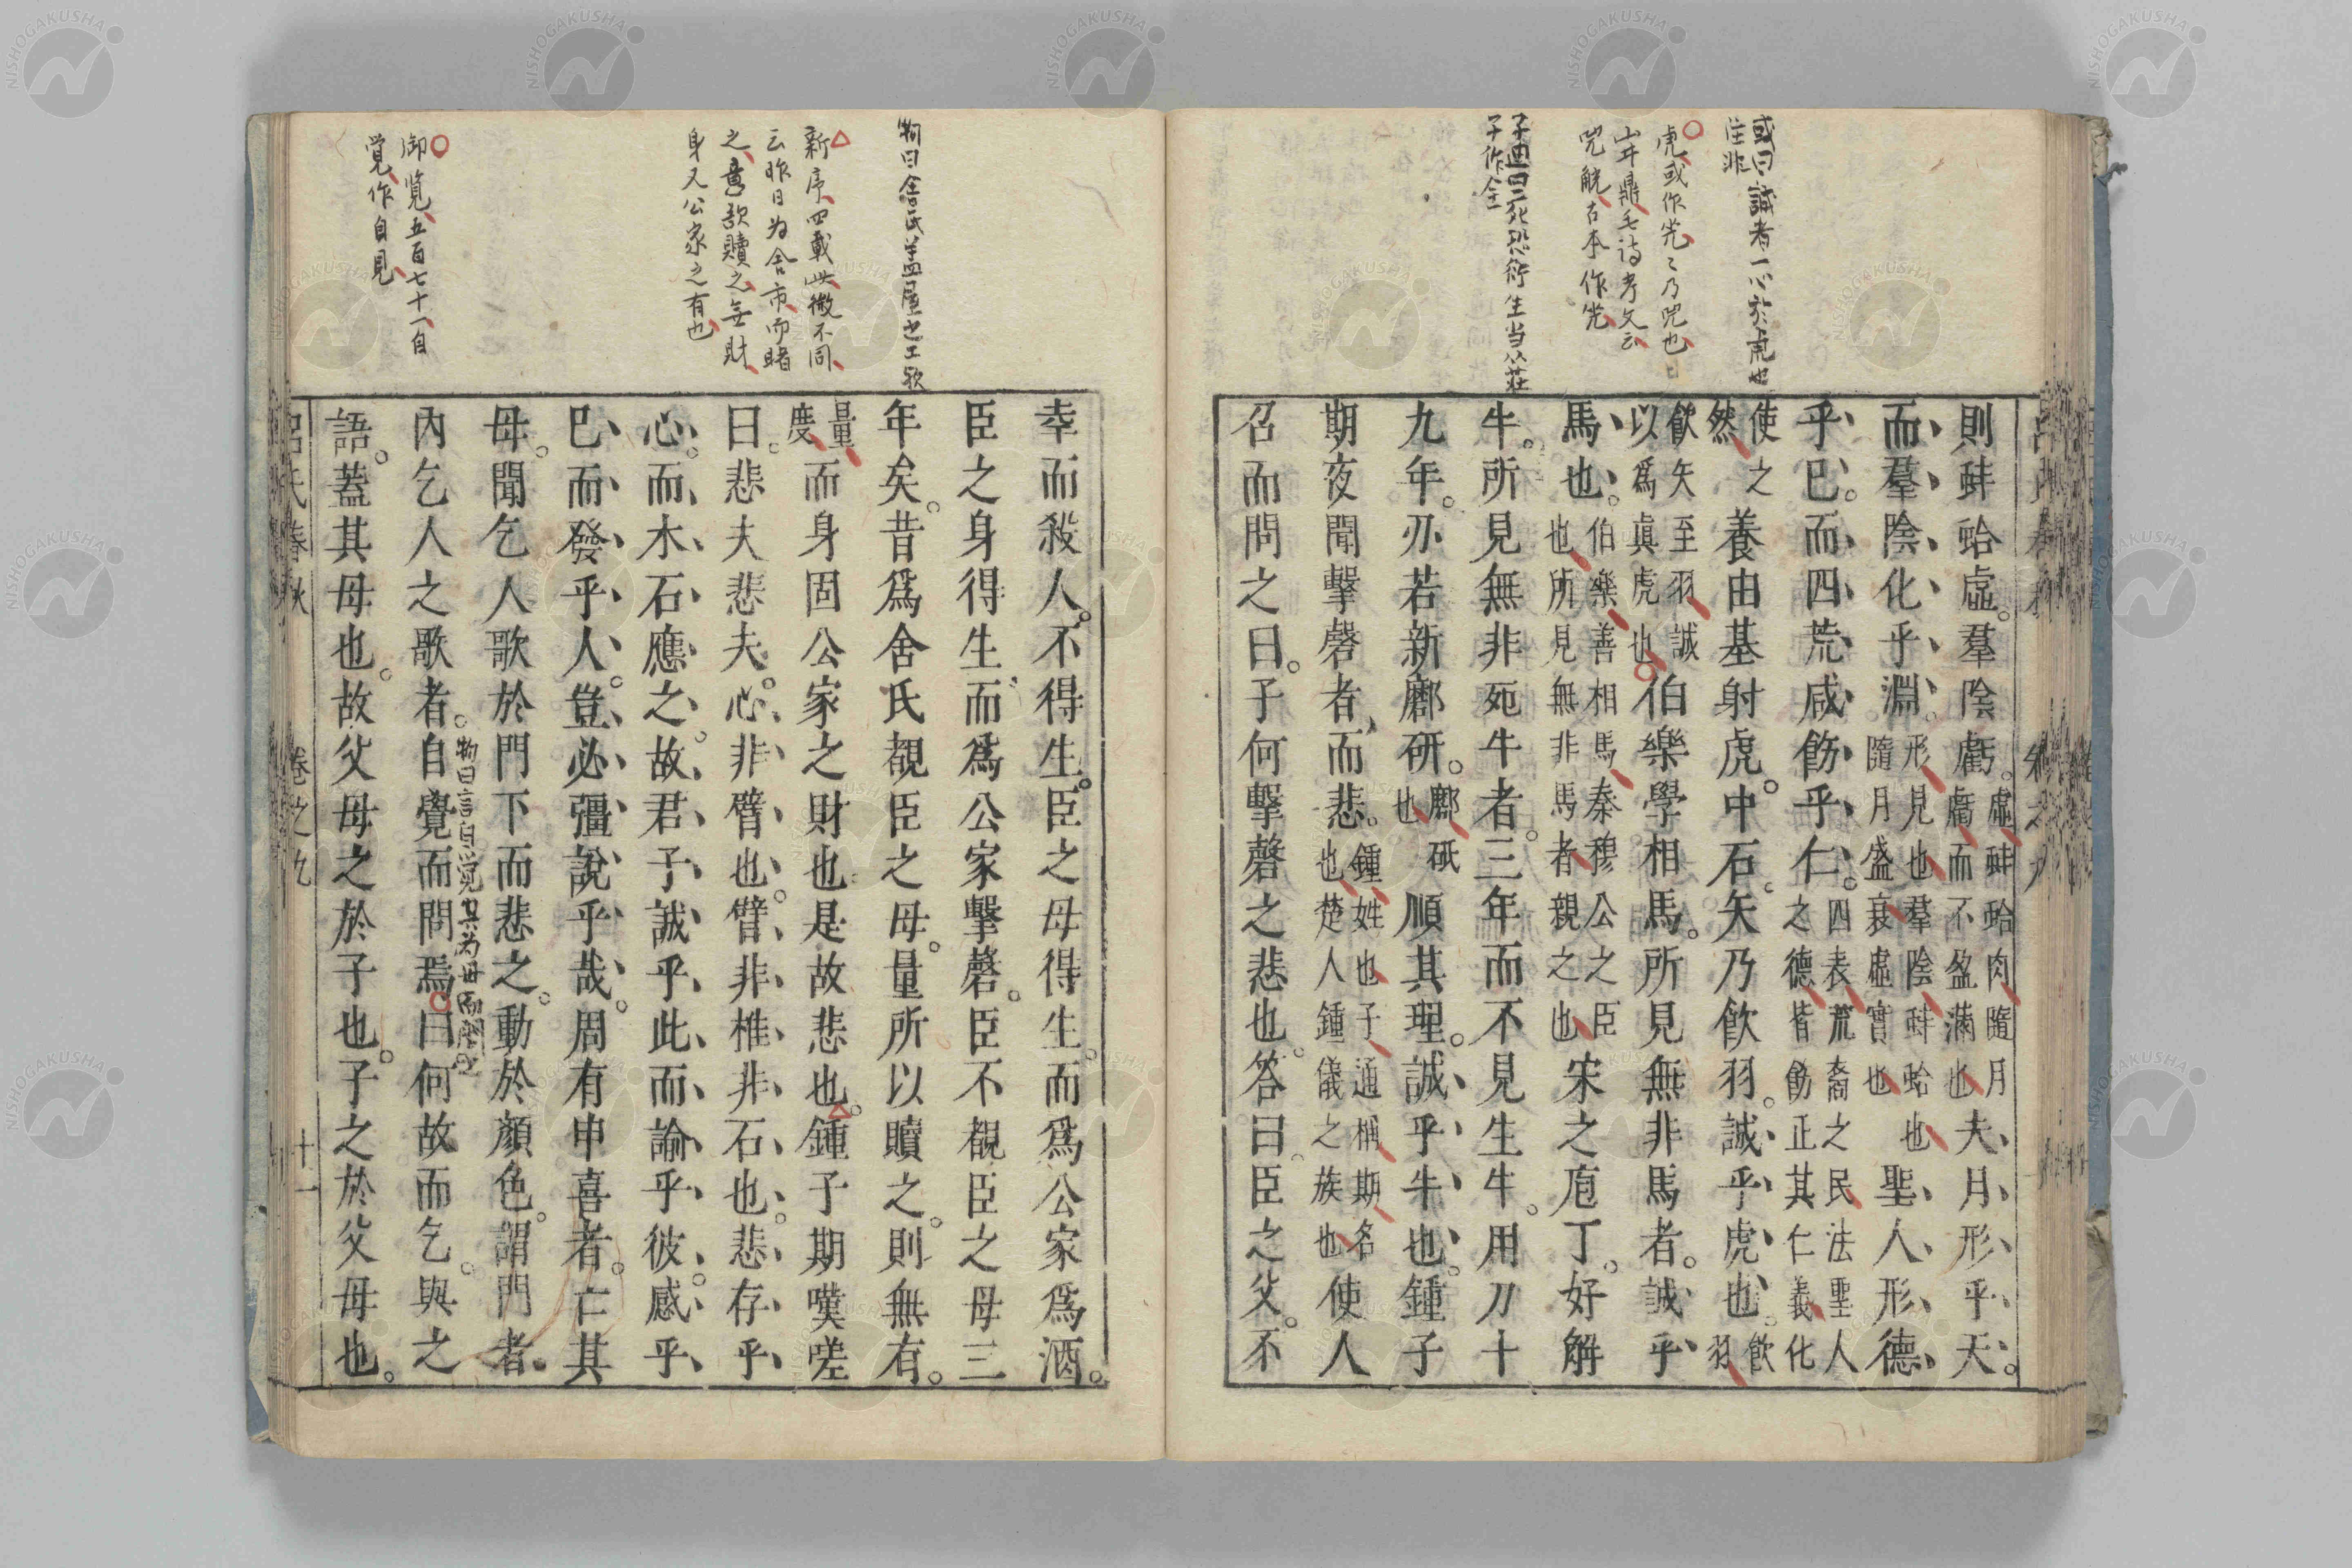 或曰誠者一心於虎也
注非
虎或作兕〻乃兕也
山井鼎毛詩考文云
兕觥古本作兕
子迪曰二死恐衍生当从莊
子作全
則蚌蛤虛。羣陰虧。虛蚌蛤肉隨月虧而不盈滿也夫、月、形、乎、天。
而、羣、陰、化、乎、淵。形見也羣陰蚌蛤也隨月盛衰虛實也聖、人、形、德、
乎、已。而、四、荒、咸、飭、乎、仁。四表荒裔之民法聖人之德皆飭正其仁義化
使之然養由基射虎。中石。矢乃飲羽。誠、乎、虎、也。飲羽
飲矢至羽誠以爲眞虎也伯樂學相馬。所見無非馬者。誠、乎、
馬、也。伯樂善相馬秦穆公之臣也所見無非馬者親之也宋之庖丁。好解
牛。所見無非死牛者。三年而不見生牛。用刀十
九年。刃若新磨研。磨砥也順其理。誠、乎、牛、也。鍾子
期夜聞擊磬者、而悲。鍾姓也子通稱期名也楚人鍾儀之族也使人
召而問之曰。子何擊磬之悲也。答曰。臣之父。不
物曰舍氏盖屋之工歟
新序四載此微不同
云昨日为舍市而睹
之意欲贖之無財
身又公家之有也
御覧五百七十一自
覚作自見
幸而殺人。不得生。臣之母得生。而爲公家爲酒。
臣之身得生、而爲公家擊磬。臣不覩臣之母三
年矣。昔爲舍氏覩臣之母。量所以贖之。則無有。
量度而身固公家之財也。是故悲也。鍾子期嘆嗟
曰。悲夫悲夫。心、非臂、也。臂、非、椎、非、石、也。悲、存、乎、
心。而、木、石、應、之。故、君、子、誠、乎、此、而、諭、乎、彼。感、乎、
已、而、發、乎、人。豈、必、彊、說、乎、哉。周有申喜者。亡其
母。聞乞人歌於門下而悲之。動於顏色。謂門者。
物曰言自覚其为母而問之
內乞人之歌者。自覺而問焉曰。何故而乞。與之
語。蓋其母也。故父母之於子也。子之於父母也。
呂氏春秋 卷之九 十一